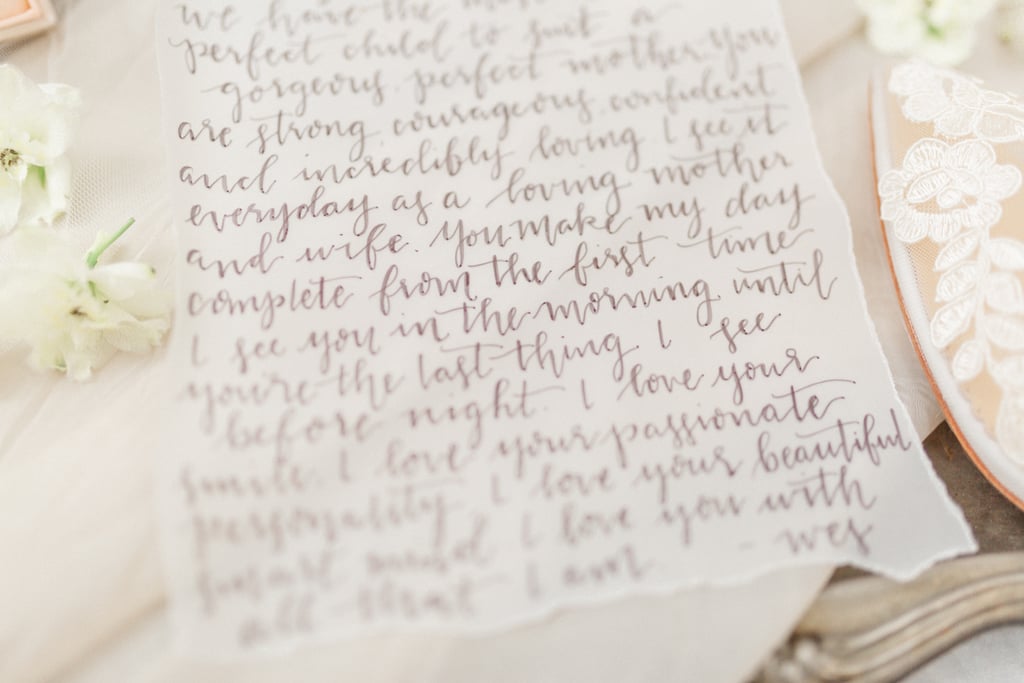 we have the most
perfect child to suit a
gorgeous, perfect mother. You
are strong courageous, confident
and incredibly loving I see it
everyday as a loving mother
and wife. You make my day
complete from the first time
I see you in the morning until
you're the last thing I see
before night. I love your
smile. I love your passionate
personality I love your beautiful
smart mind I love you with
all that I am. - wes